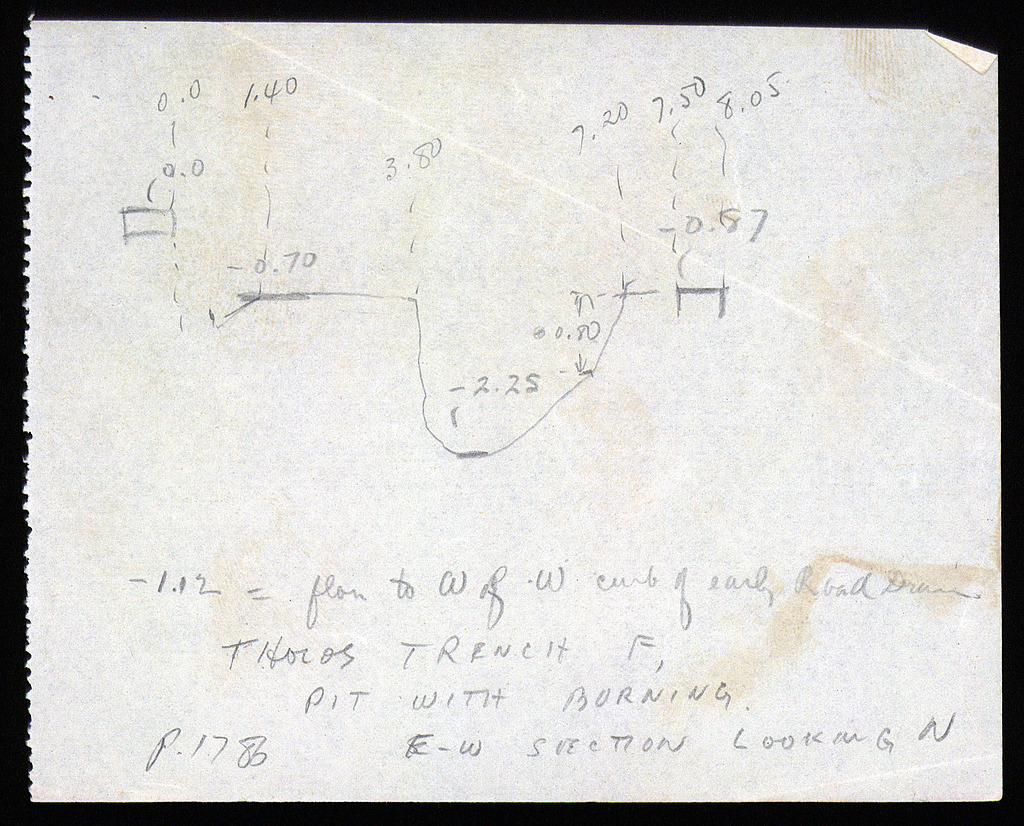 0.0 1.40 3.80 7.20 7.50 8.05
0.0
-0.87
-0.70
0.80
-2.25
-1.12 = floor to W of W curb of early Road Drain
THOLOS TRENCH F,
PIT WITH BURNING.
P.1786 E-W SECTION LOOKING N